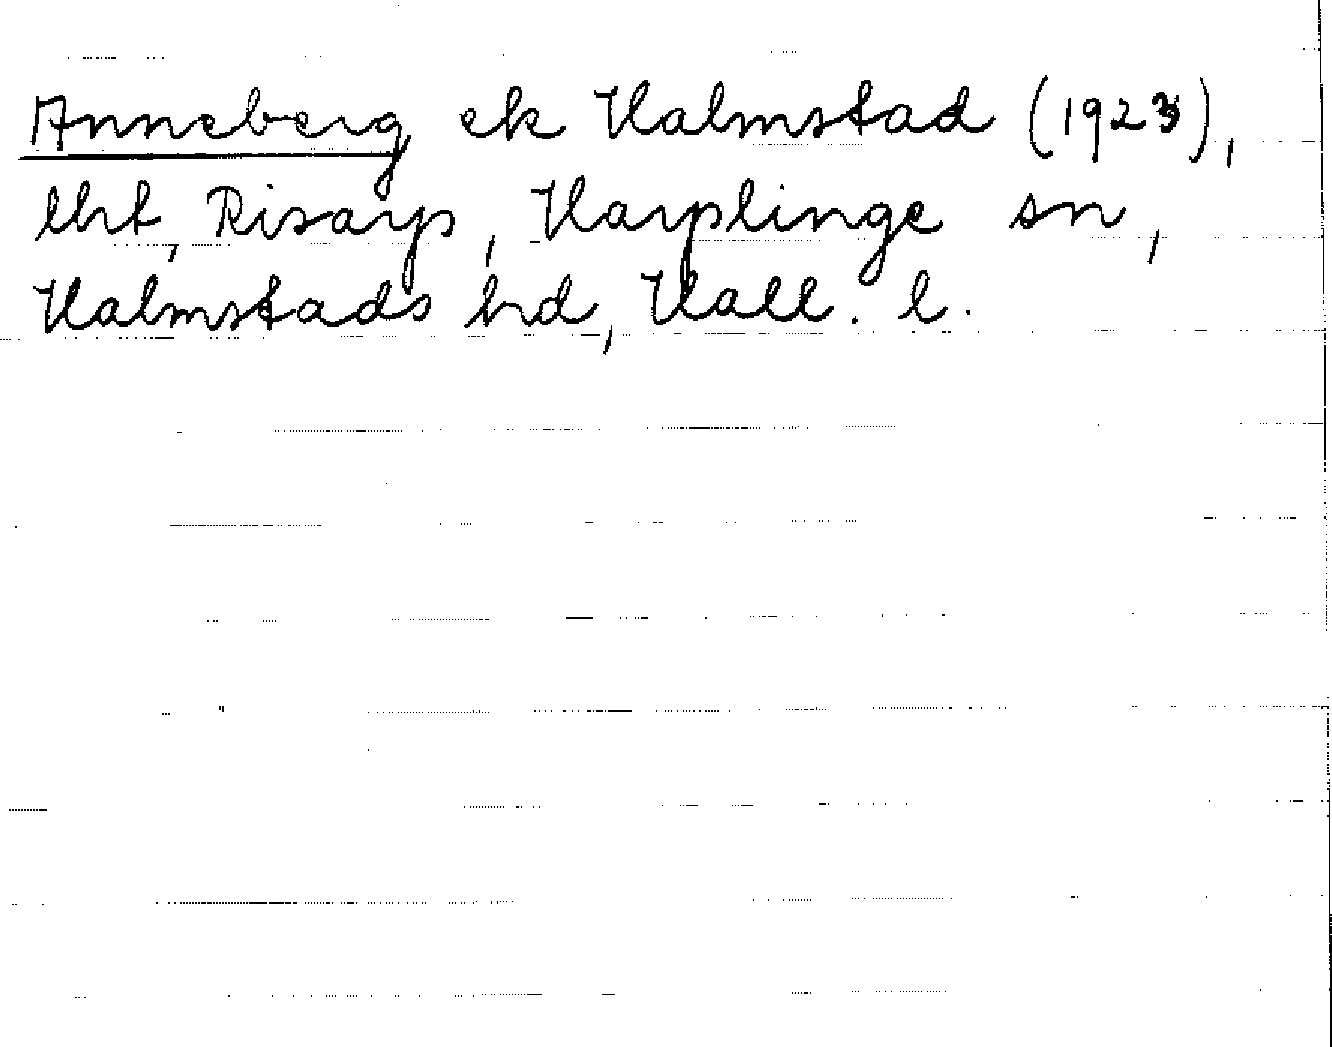 Anneberg ek Halmstad (1923),
lht, Risarp, Harplinge sn,
Halmstads hd, Hall. l.